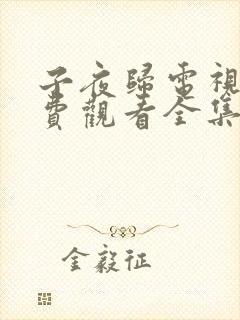 子夜歸電視
費觀看全集
金毅征